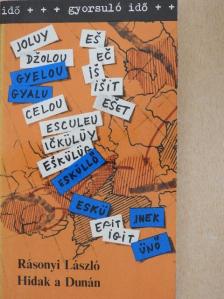 idő + + + gyorsuló idő + +
JOLUY
DŽOLOU
GYELOU
GYALU
CELOU
ESCULEU
IČKÜLÜY
EŠKÜLÜG
ESKÜLLŐ
EŠ
EČ
IŠ
IŠIT
EŠET
ESKÜ
EPIT
IGIT
JNEK
ÜNŐ
Rásonyi László
Hidak a Dunán